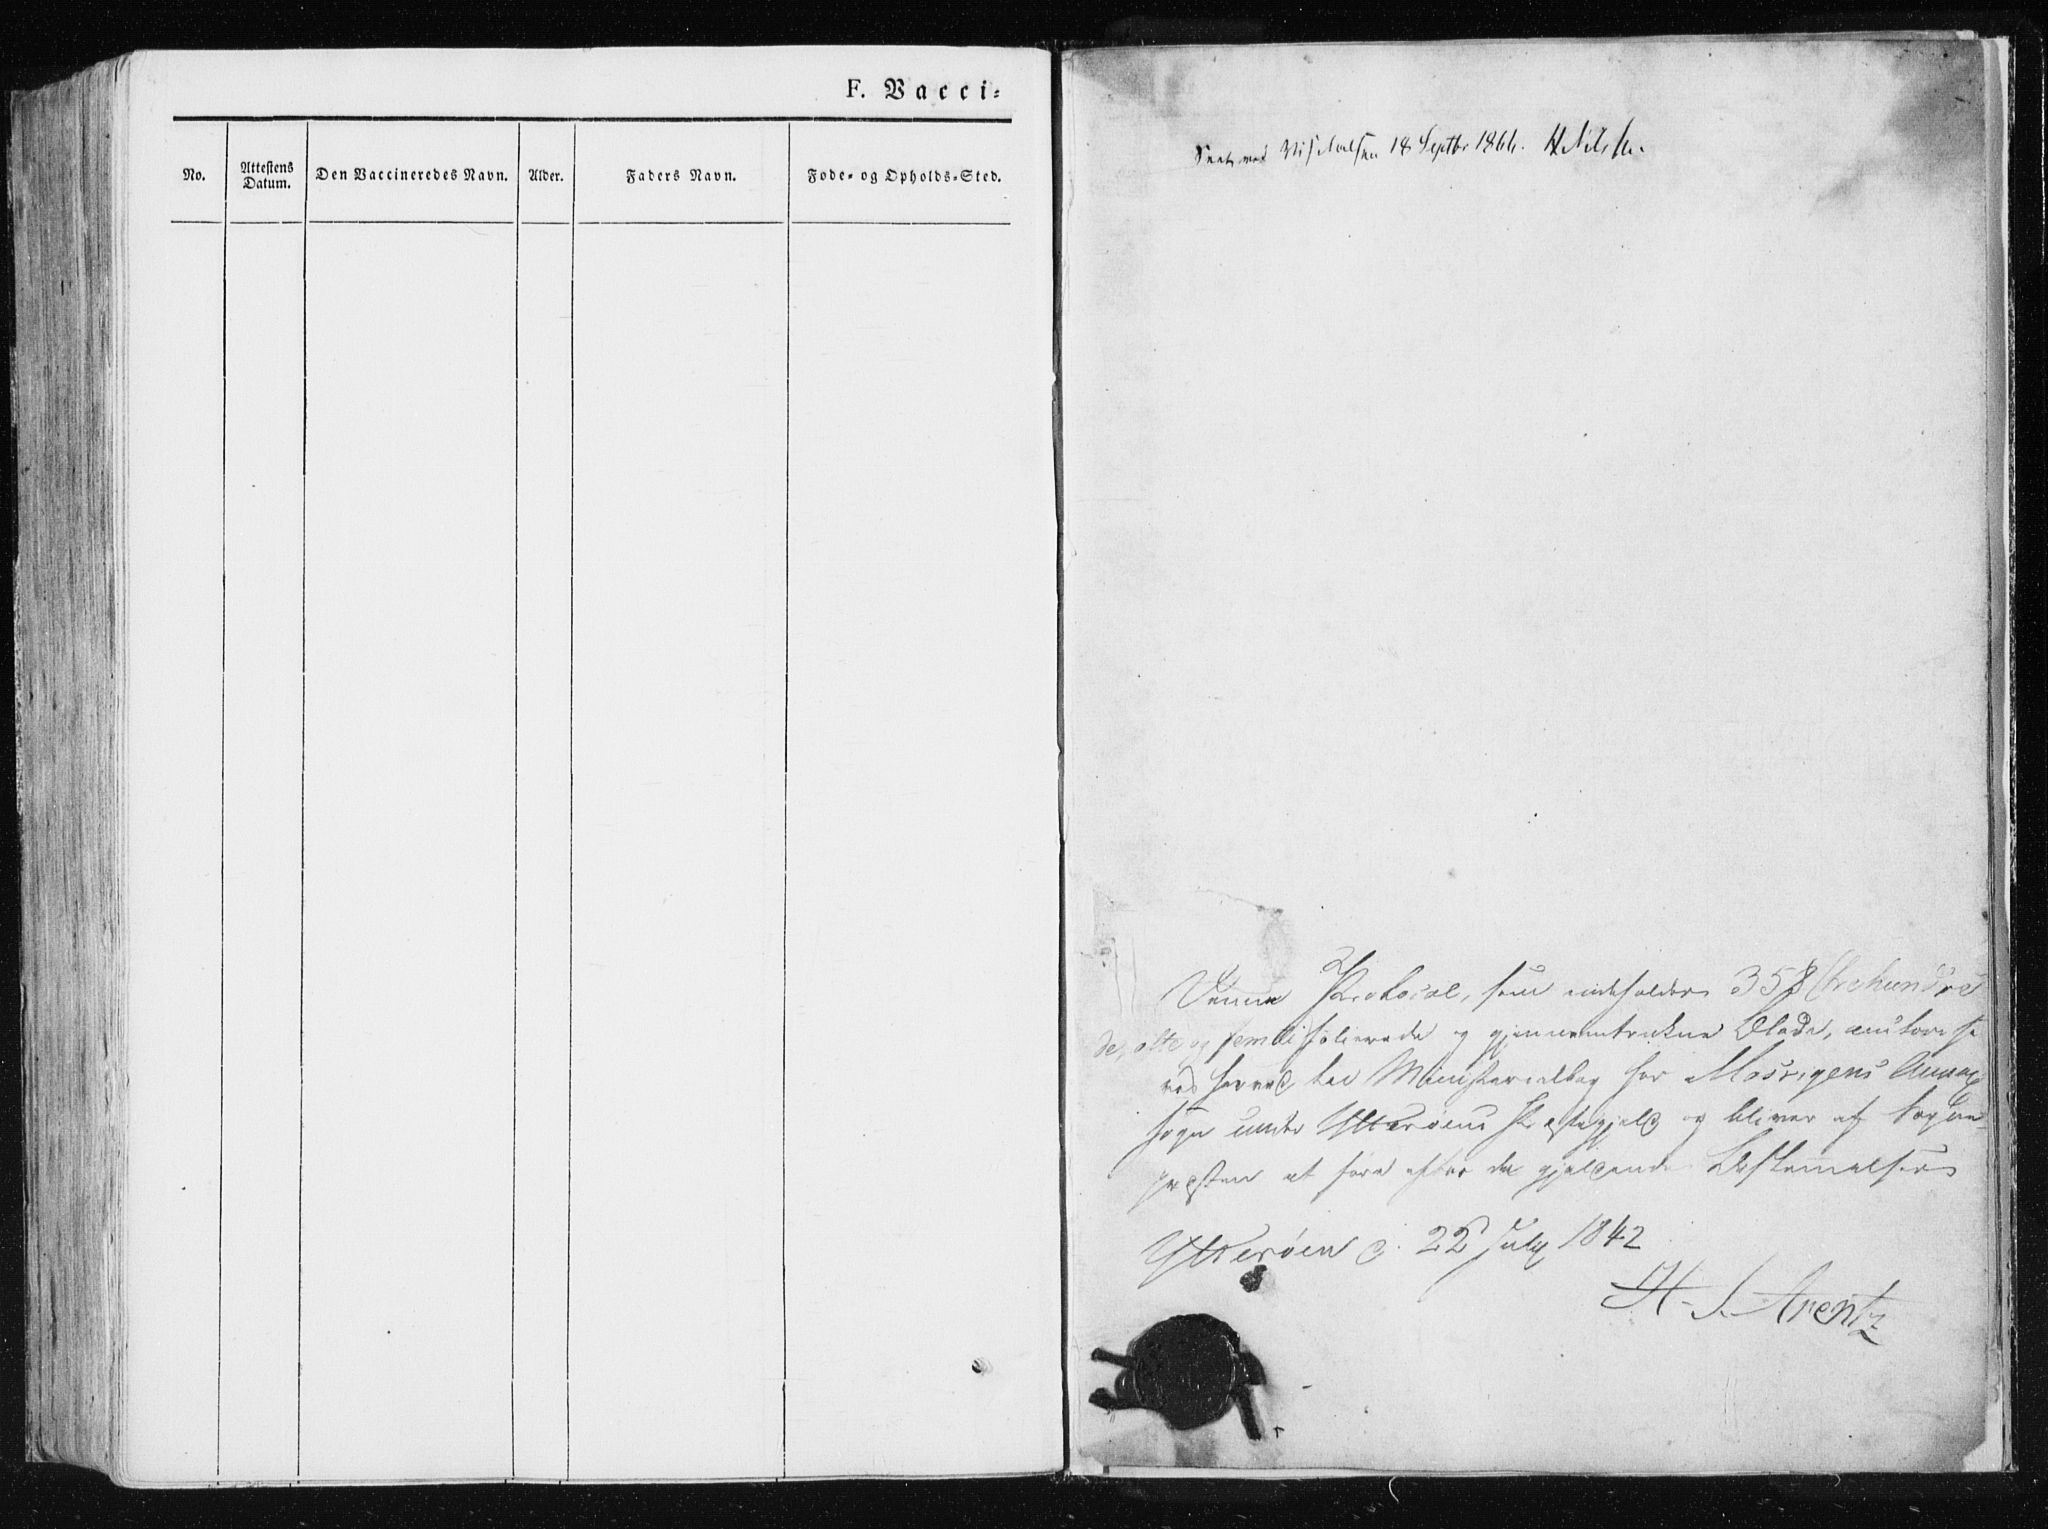 F. Vacci=
No.
Attestens Datum.
Den Vaccineredes Navn.
Alder.
Faders Navn.
Føde= og Opholds=Sted.
Seet ved Visitatsen 18 Septbr 1866.
Denne Protocol, som indeholder 358 (trehundre
de, otte og femti) folierede og gjennemtrukne Blade, autorise
res herved til Ministerialbog for Mosvigens Annex
sogn under Ytterøens Præstegjeld og bliver af Sogne-
præsten at føre efter de gjeldende Bestemmelser
Ytterøen d. 22 July 1842
H. J. Arentz